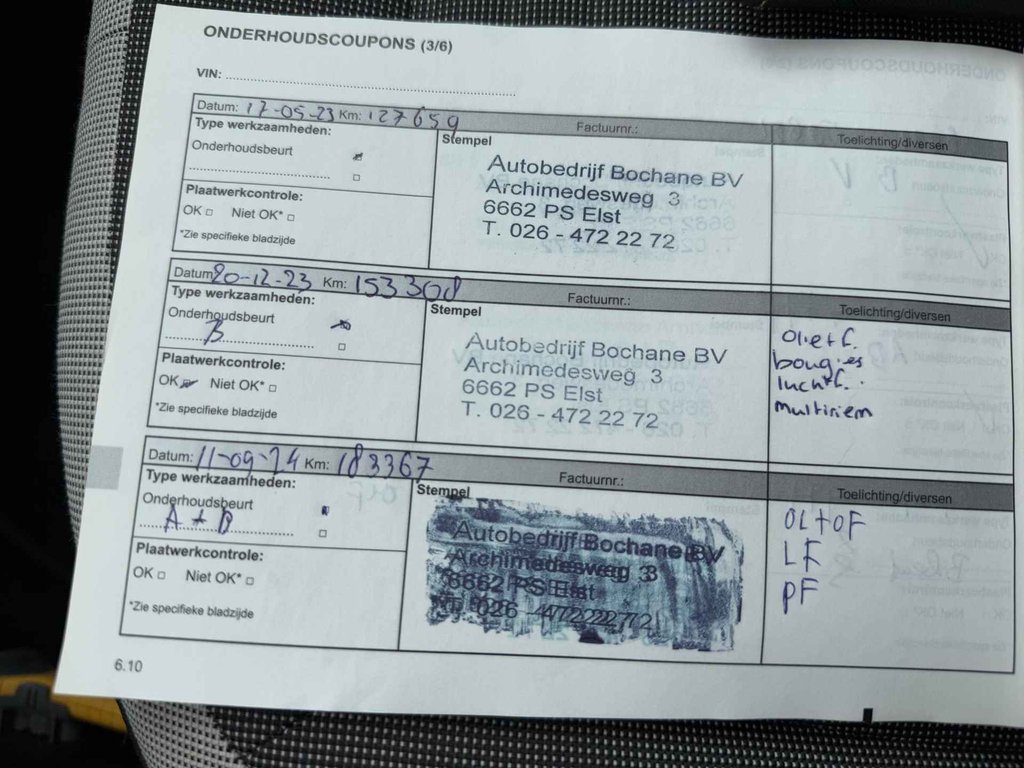 ONDERHOUDSCOUPONS (3/6)
VIN:
Datum: 17-05-23 Km: 127659
Factuurnr.:
Toelichting/diversen
Type werkzaamheden:
Stempel
Onderhoudsbeurt
Autobedrijf Bochane BV
Archimedesweg 3
6662 PS Elst
T. 026 - 472 22 72
Plaatwerkcontrole:
OK Niet OK*
*Zie specifieke bladzijde
Datum: 20-12-23 Km: 153308
Factuurnr.:
Toelichting/diversen
Type werkzaamheden:
Stempel
Onderhoudsbeurt
B
Autobedrijf Bochane BV
Archimedesweg 3
6662 PS Elst
T. 026 - 472 22 72
Olietf.
bougies
luchtf.
multiriem
Plaatwerkcontrole:
OK Niet OK*
*Zie specifieke bladzijde
Datum: 11-09-24 Km: 183367
Factuurnr.:
Toelichting/diversen
Type werkzaamheden:
Stempel
Onderhoudsbeurt
A + B
Autobedrijf Bochane BV
Archimedesweg 3
6662 PS Elst
T. 026 - 472 22 72
OL+OF
LF
PF
Plaatwerkcontrole:
OK Niet OK*
*Zie specifieke bladzijde
6.10